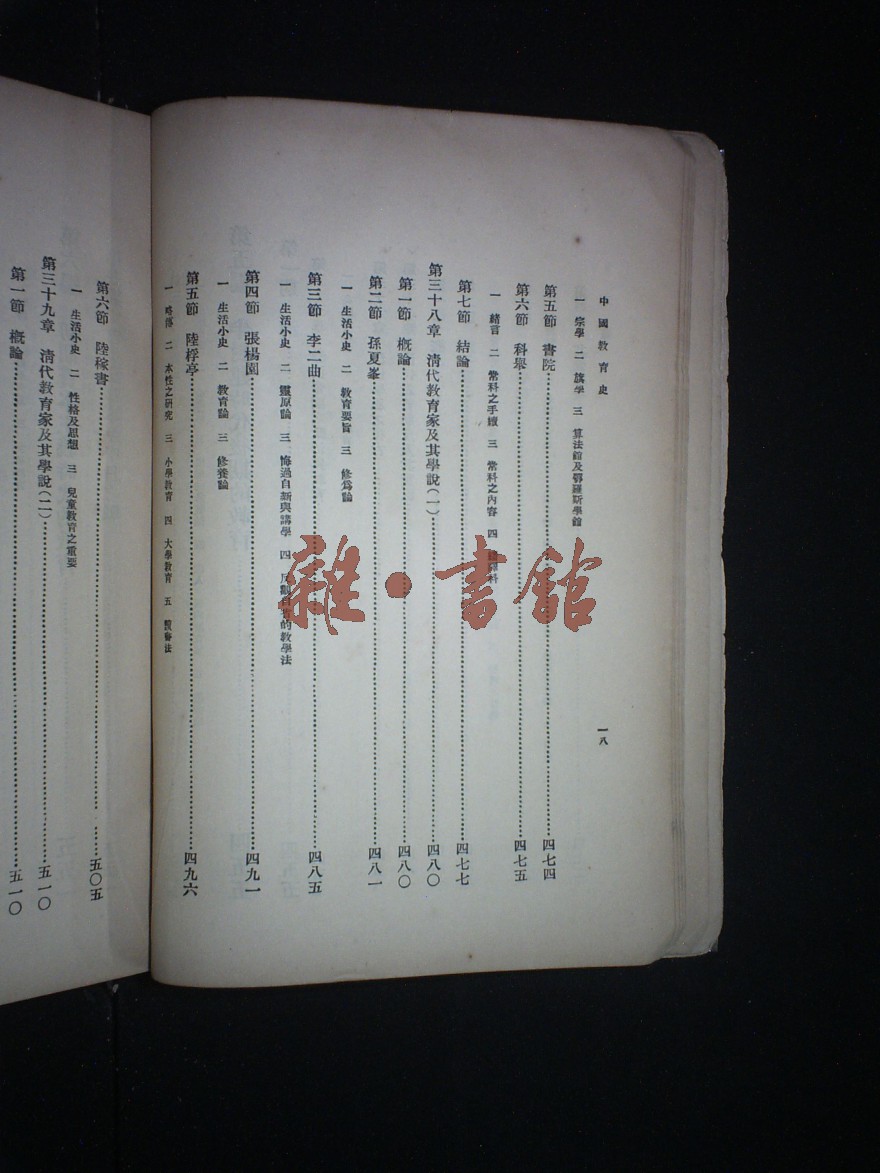 中國教育史
一八
一 宗學 二 旗學 三 算法館及鄂羅斯學館
第五節 書院⋯⋯四七四
第六節 科舉⋯⋯四七五
一 緒言 二 常科之手續 三 常科之內容 四 科
第七節 結論⋯⋯四七七
第三十八章 清代教育家及其學說(一)⋯⋯四八〇
第一節 概論⋯⋯四八〇
第二節 孫夏峯⋯⋯四八一
一 生活小史 二 教育要旨 三 修爲論
第三節 李二曲⋯⋯四八五
一 生活小史 二 靈原論 三 悔過自新與講學 四 的教學法
第四節 張楊園⋯⋯四九一
一 生活小史 二 教育論 三 修養論
第五節 陸桴亭⋯⋯四九六
一 略傳 二 本性之研究 三 小學教育 四 大學教育 五 法
第六節 陸稼書⋯⋯五〇五
一 生活小史 二 性格及思想 三 兒童教育之重要
第三十九章 清代教育家及其學說(二)⋯⋯五一〇
第一節 概論⋯⋯五一〇
雜·書館